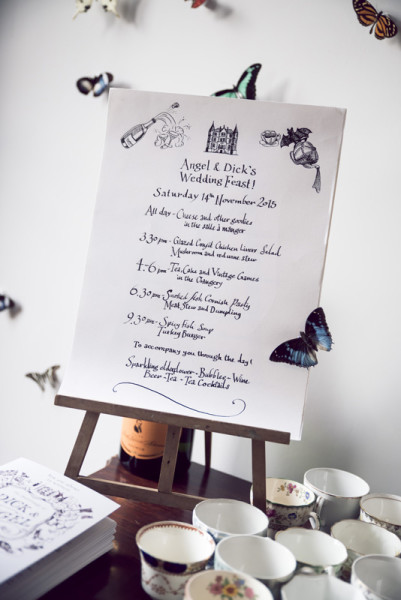 Angel & Dick's
Wedding Feast!
Saturday 14th November 2015
All day - Cheese and other goodies
in the salle à manger
3.30 pm - Glazed Confit Chicken Liver Salad
Mushroom and red wine stew
4-6 pm - Tea, Cake and Vintage Games
in the Orangery
6.30 pm - Smoked fish Cornish Pasty
Meat Stew and Dumpling
9.30 pm - Spicy Fish Soup
Turkey Burger
To accompany you through the day!
Sparkling elderflower - Bubbles - Wine
Beer - Tea - Tea Cocktails